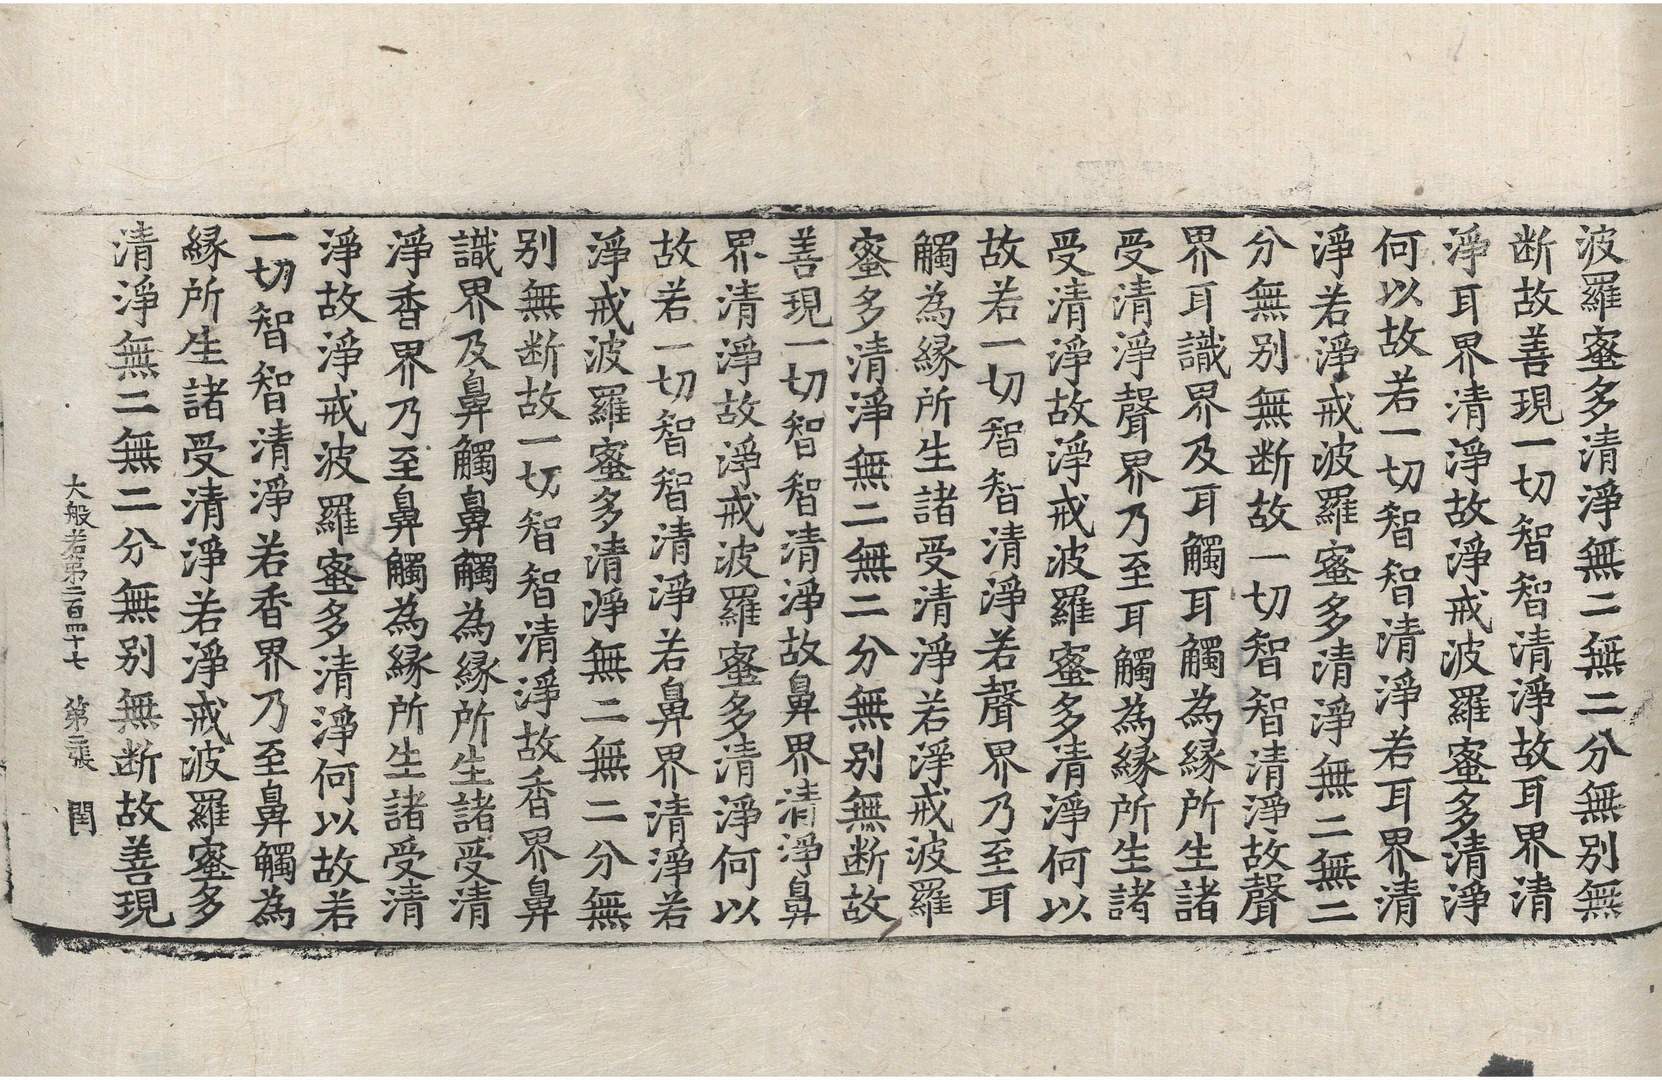 波羅蜜多清淨無二無二分無別無
断故善現一切智智清淨故耳界清
淨耳界清淨故淨戒波羅蜜多清淨
何以故若一切智智清淨若耳界清
淨若淨戒波羅蜜多清淨無二無二
分無別無断故一切智智清淨故聲
界耳識界及耳觸耳觸為縁所生諸
受清淨聲界乃至耳觸為縁所生諸
受清淨故淨戒波羅蜜多清淨何以
故若一切智智清淨若聲界乃至耳
觸為縁所生諸受清淨若淨戒波羅
蜜多清淨無二無二分無別無断故
善現一切智智清淨故鼻界清淨鼻
界清淨故淨戒波羅蜜多清淨何以
故若一切智智清淨若鼻界清淨若
淨戒波羅蜜多清淨無二無二分無
別無断故一切智智清淨故香界鼻
識界及鼻觸鼻觸為縁所生諸受清
淨香界乃至鼻觸為縁所生諸受清
淨故淨戒波羅蜜多清淨何以故若
一切智智清淨若香界乃至鼻觸為
縁所生諸受清淨若淨戒波羅蜜多
清淨無二無二分無別無断故善現
大般若第二百四十七 第二張 閏